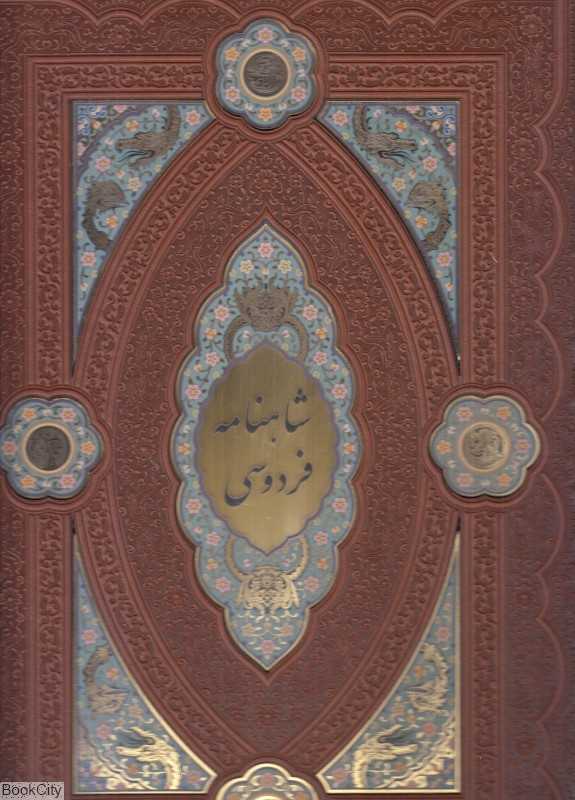 شاهنامه
فردوسی
BookCity